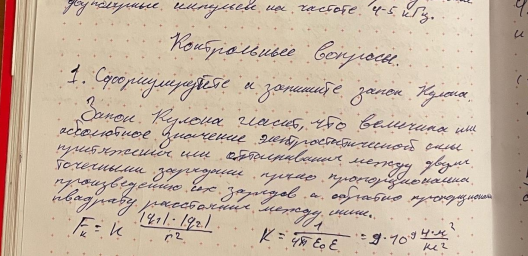 импульсы на частоте 4-5 кГц.
Контрольные вопросы.
1. Сформулируйте и запишите закон Кулона.
Закон Кулона гласит, что величина или
абсолютное значение электростатической силы
притяжения или отталкивания между двумя
точечными зарядами прямо пропорциональна
произведению их зарядов и обратно пропорциональна
квадрату расстояния между ними.
Fₖ = k |q₁|·|q₂| / r² K = 1 / 4π ε₀ ε = 9·10⁹ Н·м² / Кл²